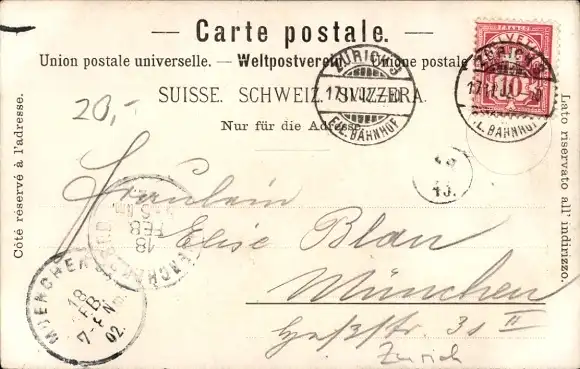 — Carte postale. —
Union postale universelle. — Weltpostverein. — Unione postale
SUISSE. SCHWEIZ. SVIZZERA.
Nur für die Adresse.
Côté réservé à l'adresse.
Lato riservato all' indirizzo.
20,-
ZÜRICH 3
FIL. BAHNHOF
ZÜRICH 3
FIL. BAHNHOF
10
Fräulein
Elise Blau
München
31 II
Zürich
18
FEB
MUENCHEN
18
FEB
02.